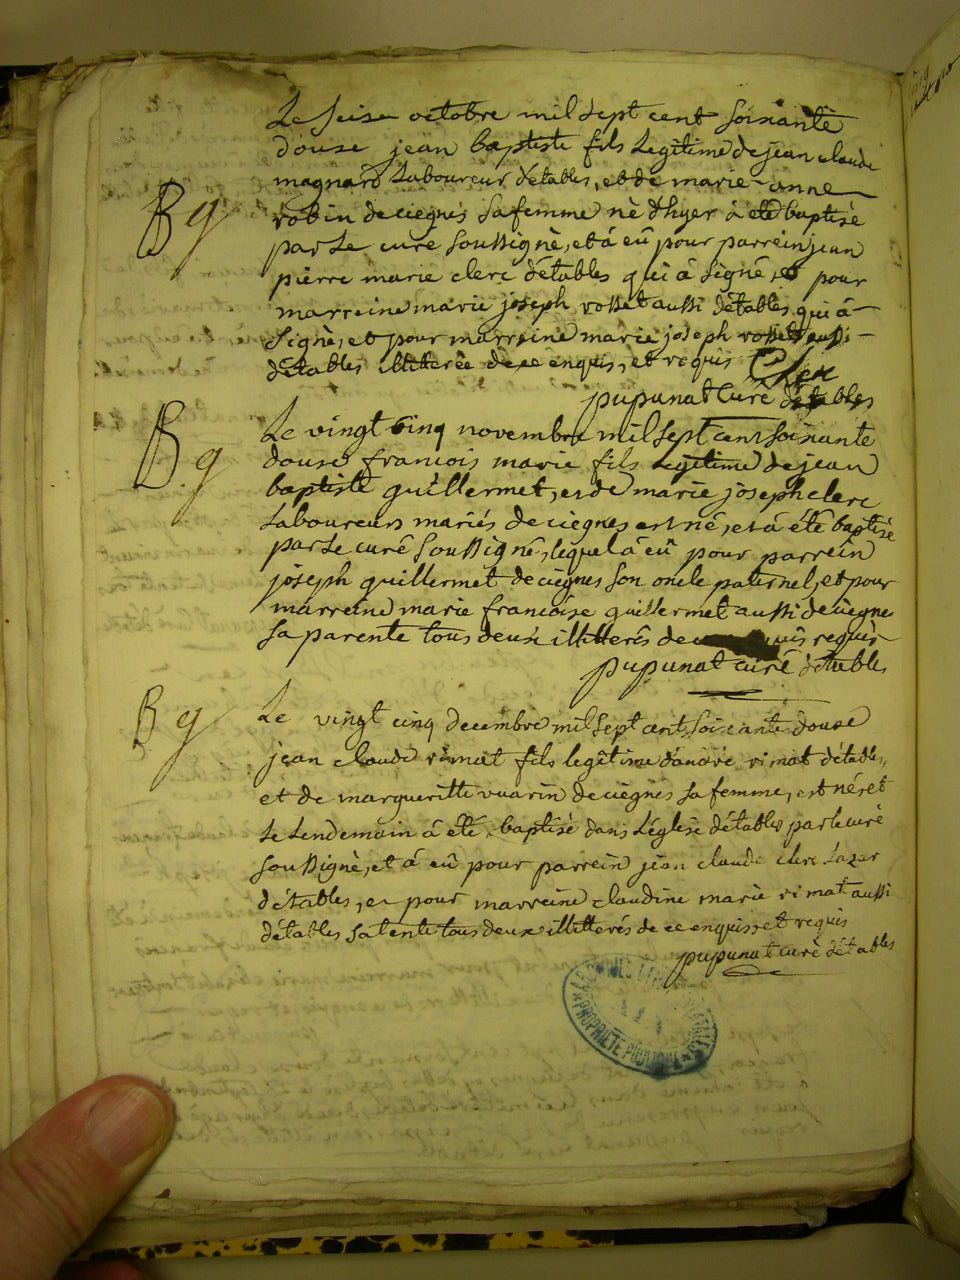 Le seise octobre mil sept cent soixante
douse jean baptiste fils Legitime de jean claude
magnard Laboureur d'etables, et de marie anne
robin de ciegnes sa femme nè d'hyer à eté baptisé
par Le curé soussigné, et á eû pour parrein jean
pierre marie clerc d'étables qui á signé, et pour
marreine marie joseph rosset aussi détables qui á
signé, et pour marreine marie joseph rosset aussi
détables illiterée de ce enquis, et requis Clerc
pupunat Curé détables
B g
Le vingt cinq novembre mil sept cent soixante
douse francois marie fils Legitime de jean
baptiste guillermet, et de marie joseph clerc
Laboureurs mariés de ciegnes est né, et á été baptisé
par Le curé soussigné, lequel á eû pour parrein
joseph guillermet de ciegnes son oncle paternel, et pour
marreine marie francoise guillermet aussi de ciegnes
sa parente tous deux illitterés de requis
pupunat curé détables
B. g
Le vingt cinq decembre mil sept cent soixante douse
jean claude rimat fils legitime d'andré rimat détables,
et de margueritte vuarin de ciègnes sa femme, est né, et
Le Lendemain á eté baptisé dans L'église détables par le curé
soussigné, et á eû pour parrein jean claude clerc Lazar
détables, et pour marreine claudine marie rimat aussi
détables sa tente tous deux illitterés de ce enquis, et requis
pupunat curé détables
B g
PROPRIÉTÉ PUBLIQUE